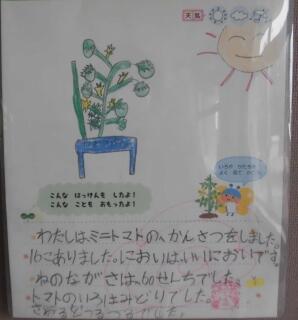 天気
いろや かたちを
よく 見て かこう
こんな はっけんを したよ!
こんな ことを おもったよ!
わたしは、ミニトマトの、かんさつをしました。
16こありました。においは、いいにおいです。
ねのながさは、60せんちでした。
トマトのいろはみどりでした。
さわるとつるつるでした。